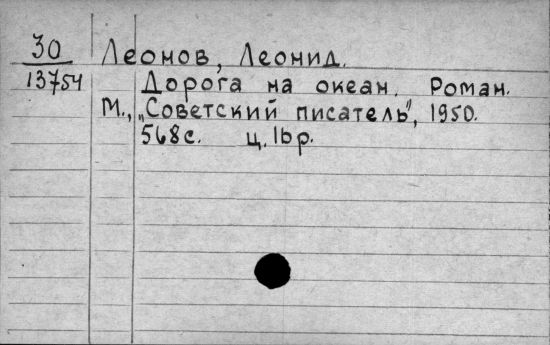 30 Леонов, Леонид.
13754 Дорога на океан. Роман.
М., „Советский писатель", 1950.
568с. ц. 16р.